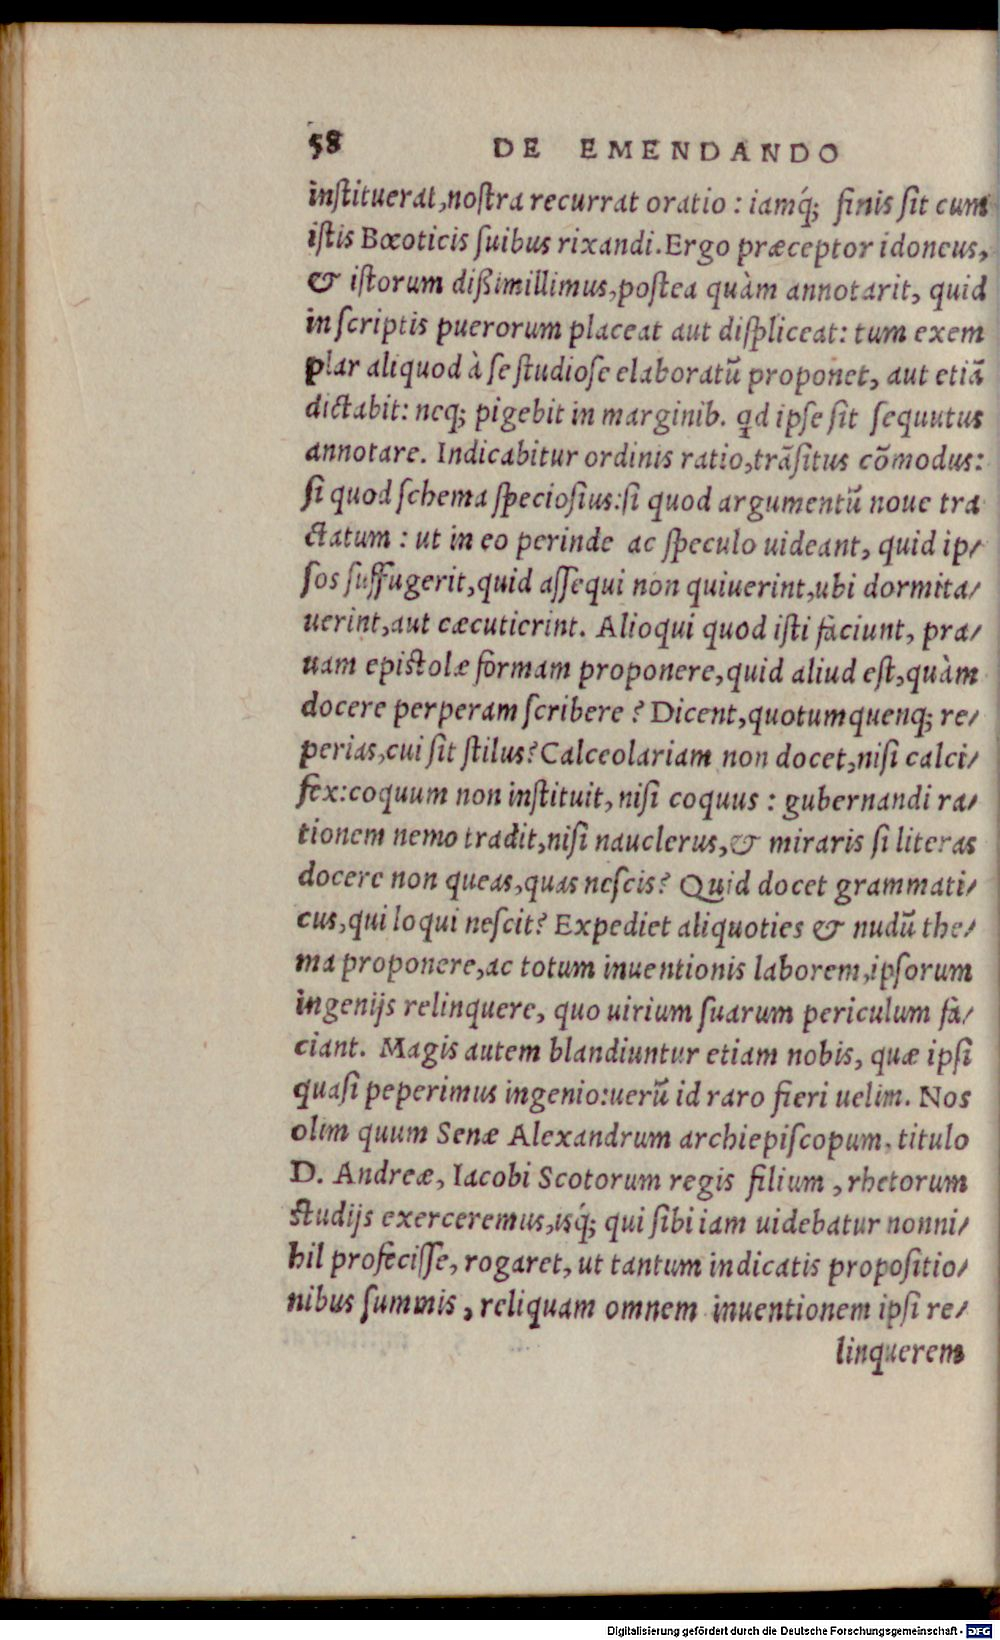 58 DE EMENDANDO
inſtituerat,noſtra recurrat oratio : iamq́; finis ſit cum
iſtis Bœoticis ſuibus rixandi.Ergo præceptor idoneus,
& iſtorum dißimillimus,poſtea quàm annotarit, quid
in ſcriptis puerorum placeat aut diſpliceat: tum exem
plar aliquod à ſe ſtudioſe elaboratũ proponet, aut etiã
dictabit: neq; pigebit in marginib. qd ipſe ſit ſequutus
annotare. Indicabitur ordinis ratio,trãſitus cõmodus:
ſi quod ſchema ſpecioſius:ſi quod argumentũ noue tra
ctatum : ut in eo perinde ac ſpeculo uideant, quid ip/
ſos ſuffugerit,quid aſſequi non quiuerint,ubi dormita/
uerint,aut cæcutierint. Alioqui quod iſti faciunt, pra/
uam epiſtolæ formam proponere,quid aliud eſt,quàm
docere perperam ſcribere ? Dicent,quotumquenq; re/
perias,cui ſit ſtilus? Calceolariam non docet,niſi calci/
fex:coquum non inſtituit, niſi coquus : gubernandi ra/
tionem nemo tradit,niſi nauclerus,& miraris ſi literas
docere non queas,quas neſcis? Quid docet grammati/
cus,qui loqui neſcit? Expediet aliquoties & nudũ the/
ma proponere,ac totum inuentionis laborem,ipſorum
ingenijs relinquere, quo uirium ſuarum periculum fa/
ciant. Magis autem blandiuntur etiam nobis, quæ ipſi
quaſi peperimus ingenio:uerũ id raro fieri uelim. Nos
olim quum Senæ Alexandrum archiepiſcopum, titulo
D. Andreæ, Iacobi Scotorum regis filium , rhetorum
ſtudijs exerceremus,isq́; qui ſibi iam uidebatur nonni/
hil profeciſſe, rogaret, ut tantum indicatis propoſitio/
nibus ſummis , reliquam omnem inuentionem ipſi re/
linquerem
Digitalisierung gefördert durch die Deutsche Forschungsgemeinschaft - DFG